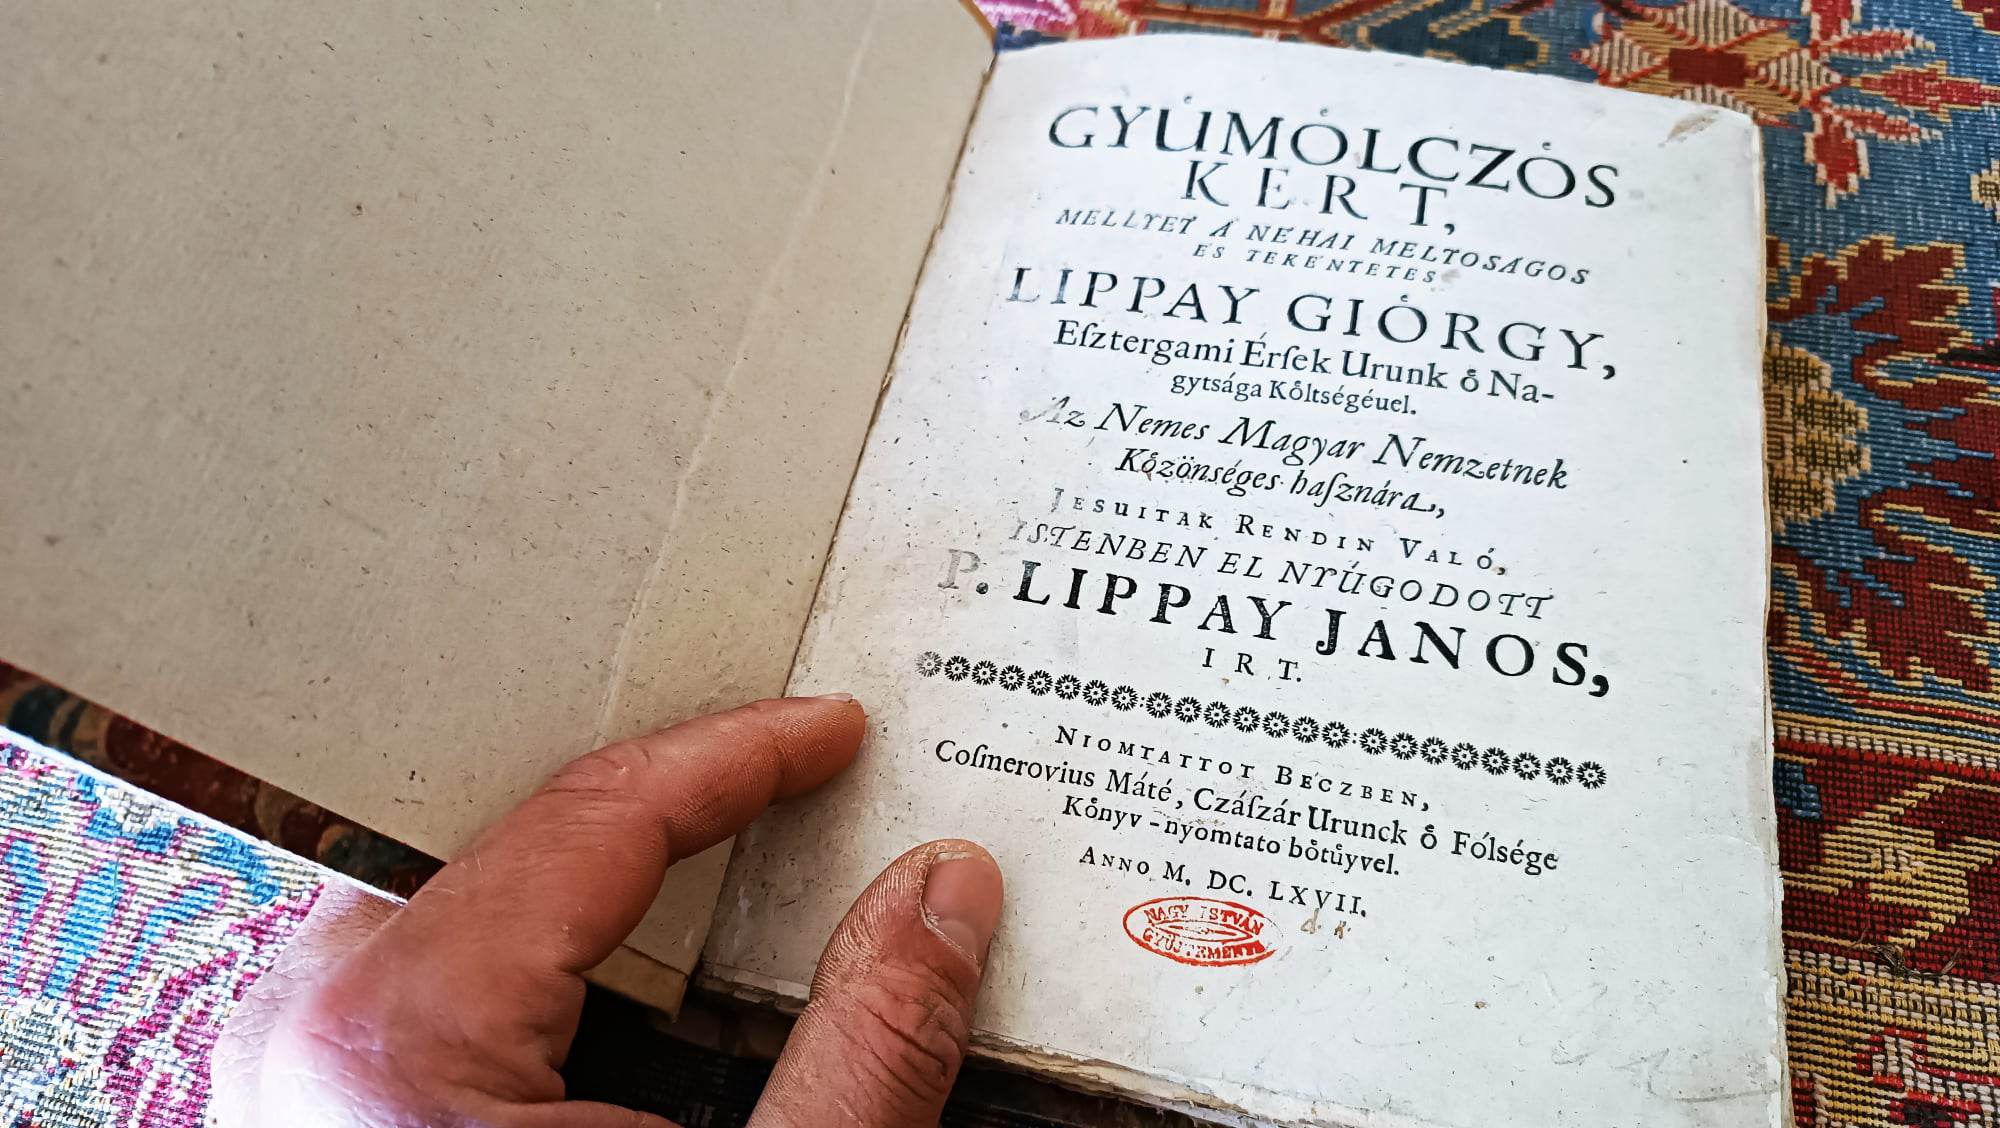 GYÚMÓLCZÓS
KERT,
MELLYET A NÉHAI MELTOSAGOS
ES TEKÉNTETES
LIPPAY GIÓRGY,
Eſztergami Érſek Urunk o̊ Na-
gytsága Ko̊ltségéuel.
Az Nemes Magyar Nemzetnek
Ko̊zönséges haſznára,
JESUITAK RENDIN VALÓ,
ISTENBEN EL NYÚGODOTT
P. LIPPAY JANOS,
IRT.
NIOMTATTOT BÉCZBEN,
Coſmerovius Máté, Czáſzár Urunck o̊ Fólsége
Ko̊nyv-nyomtato bo̊tůyvel.
ANNO M. DC. LXVII.
NAGY ISTVÁN
GYŰJTEMÉNYE